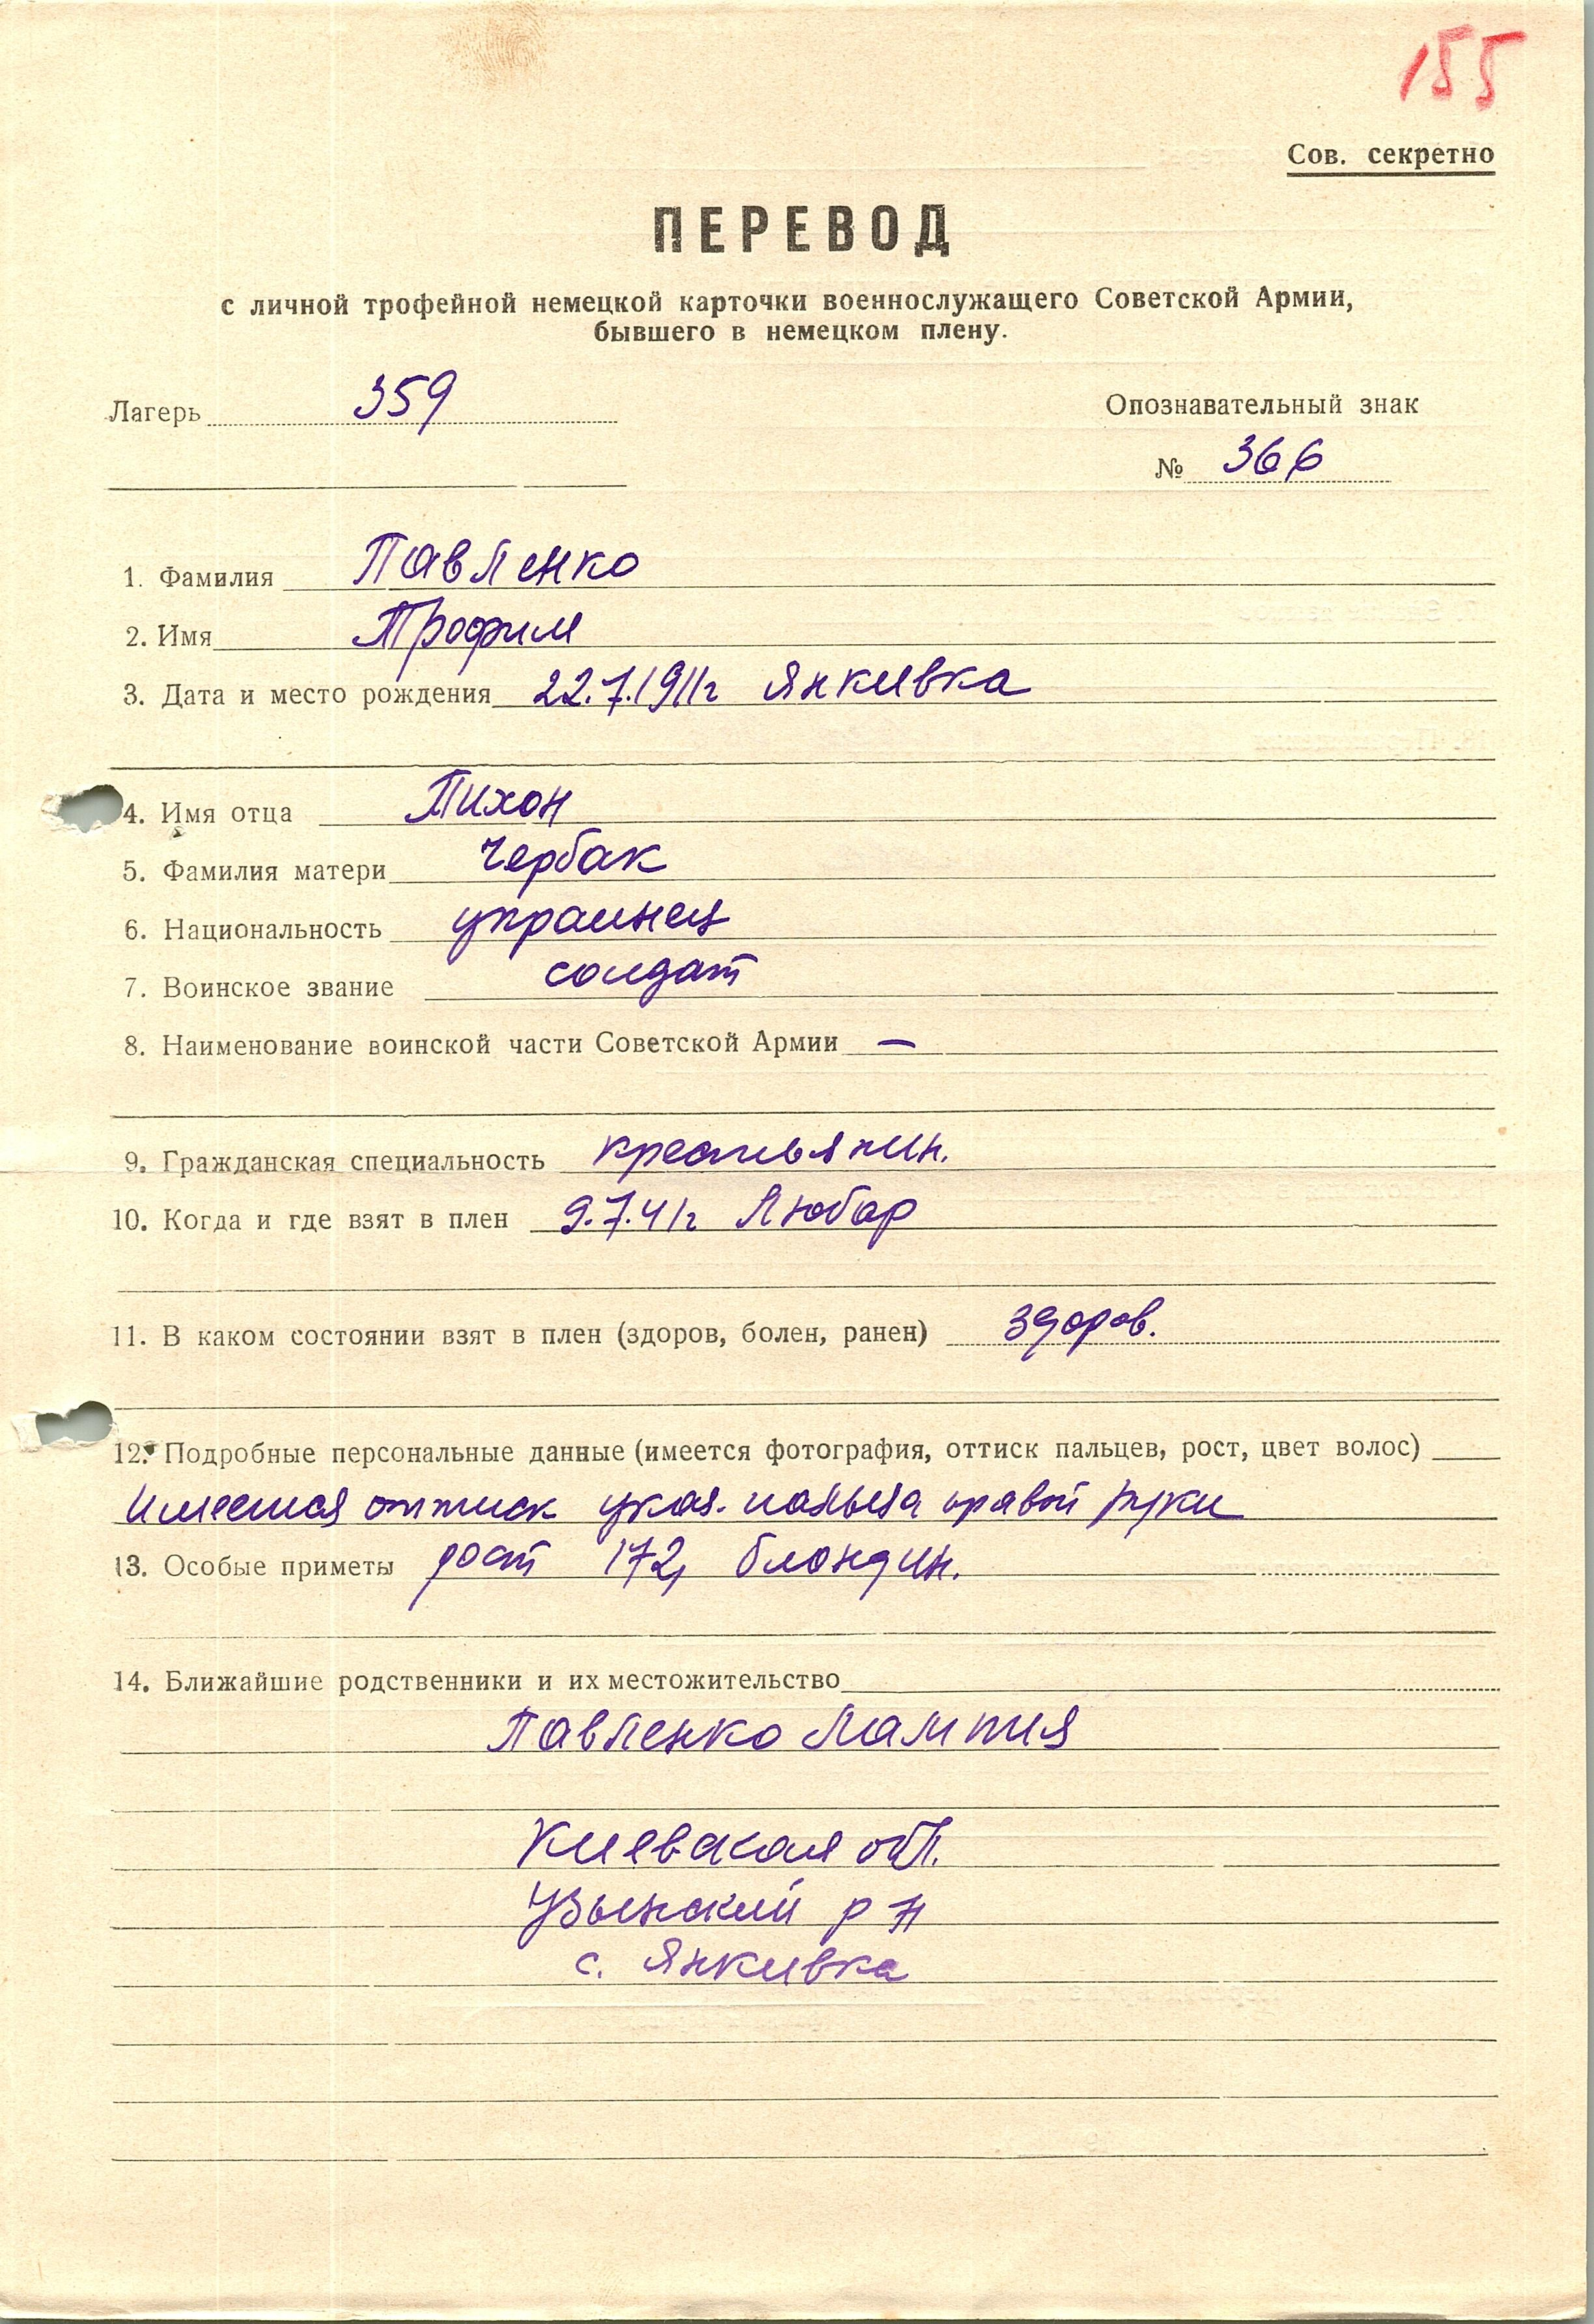 155
Сов. секретно
ПЕРЕВОД
с личной трофейной немецкой карточки военнослужащего Советской Армии,
бывшего в немецком плену.
Лагерь 359
Опознавательный знак
№ 366
1. Фамилия Павленко
2. Имя Трофим
3. Дата и место рождения 22.7.1911г Янкивка
4. Имя отца Тихон
5. Фамилия матери Чербак
6. Национальность украинец
7. Воинское звание солдат
8. Наименование воинской части Советской Армии —
9. Гражданская специальность крестьянин.
10. Когда и где взят в плен 9.7.41г Любар
11. В каком состоянии взят в плен (здоров, болен, ранен) здоров.
12. Подробные персональные данные (имеется фотография, оттиск пальцев, рост, цвет волос)
Имеется оттиск указ. пальца правой руки
13. Особые приметы рост 172, блондин.
14. Ближайшие родственники и их местожительство
Павленко Лампия
Киевская обл.
Узынский р н
с. Янкивка